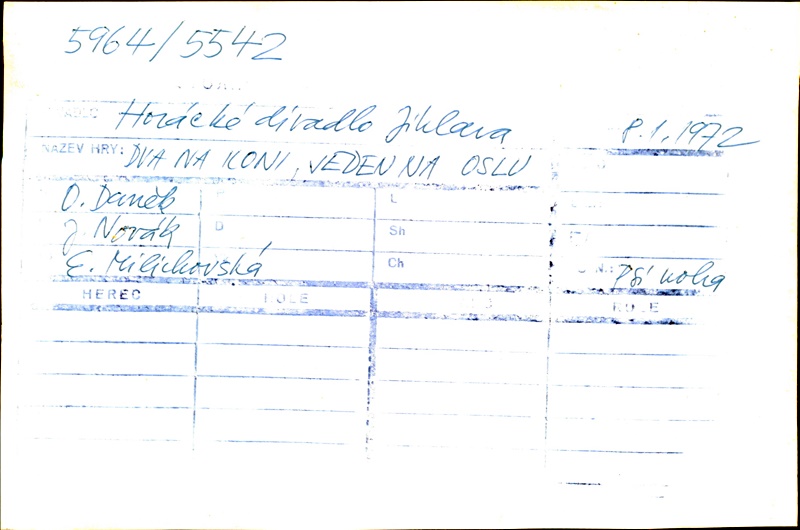 5964/5542
Horácké divadlo Jihlava 8.1.1972
NÁZEV HRY: DVA NA KONI, JEDEN NA OSLU
O. Daněk L
J. Novák D Sh
E. Milichovská Ch Psí noha
HEREC ROLE ROLE